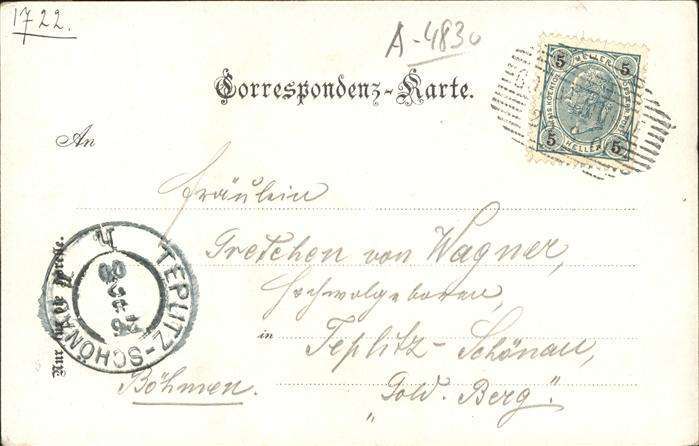 1722.
A-4830
Correspondenz-Karte.
5 HELLER 5
5 HELLER 5
An
Fräulein
Gretchen von Wagner,
Hochwolgeboren,
in Teplitz-Schönau,
Böhmen. "Gold. Berg".
TEPLITZ-SCHÖNAU
Nur für die Adresse.